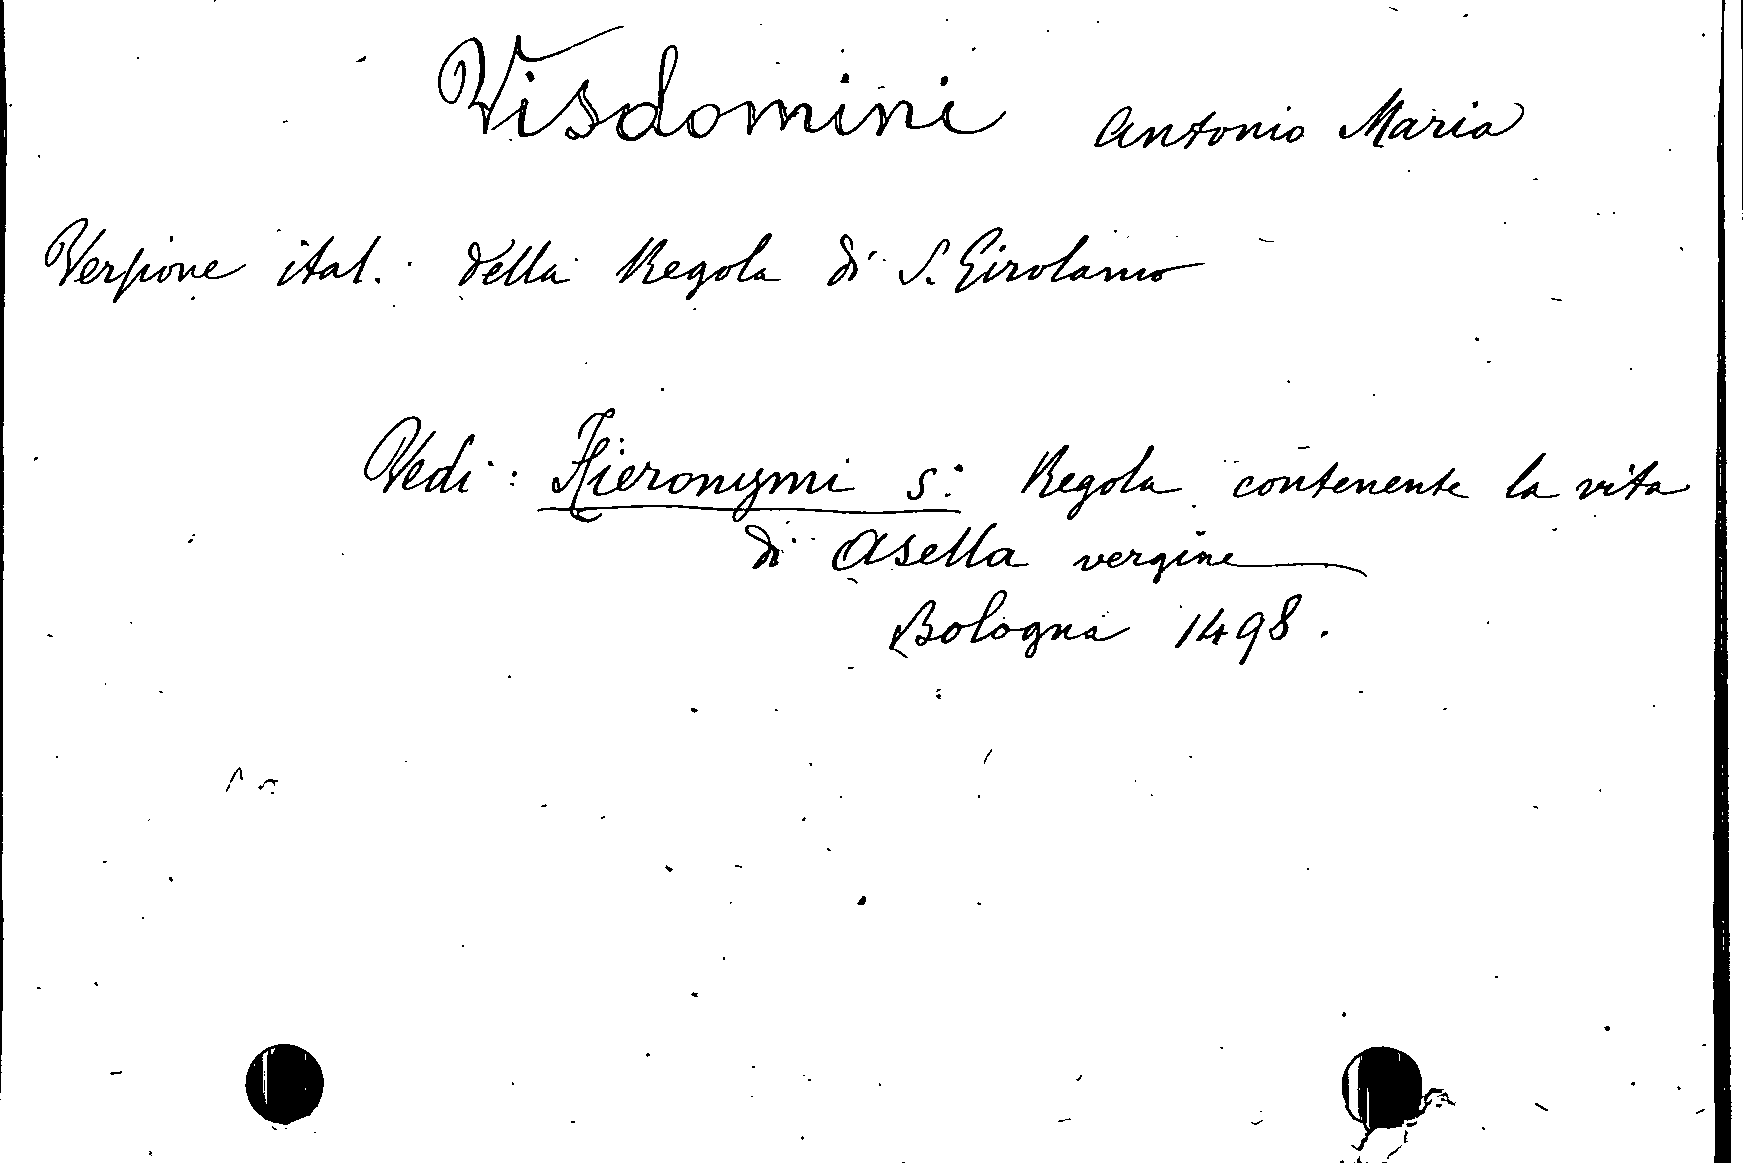 Visdomini Antonio Maria
Versione ital. della Regola di S. Girolamo
Vedi: Hieronymi s: Regola contenente la vita
di Asella vergine
Bologna 1498.